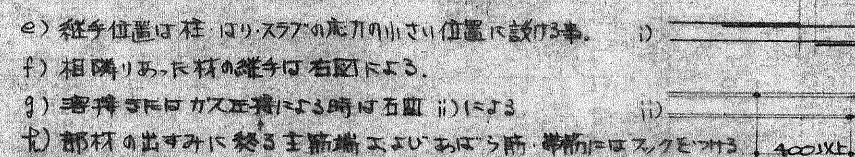 e) 継手位置は柱・はり・スラブの応力の小さい位置に設ける事。 i)
f) 相隣りあった材の継手は右図による.
g) 溶接またはガス圧接による時は右図 ii)による ii)
h) 部材の出すみに終る主筋端およびあばら筋・帯筋にはフックをつける 400以上